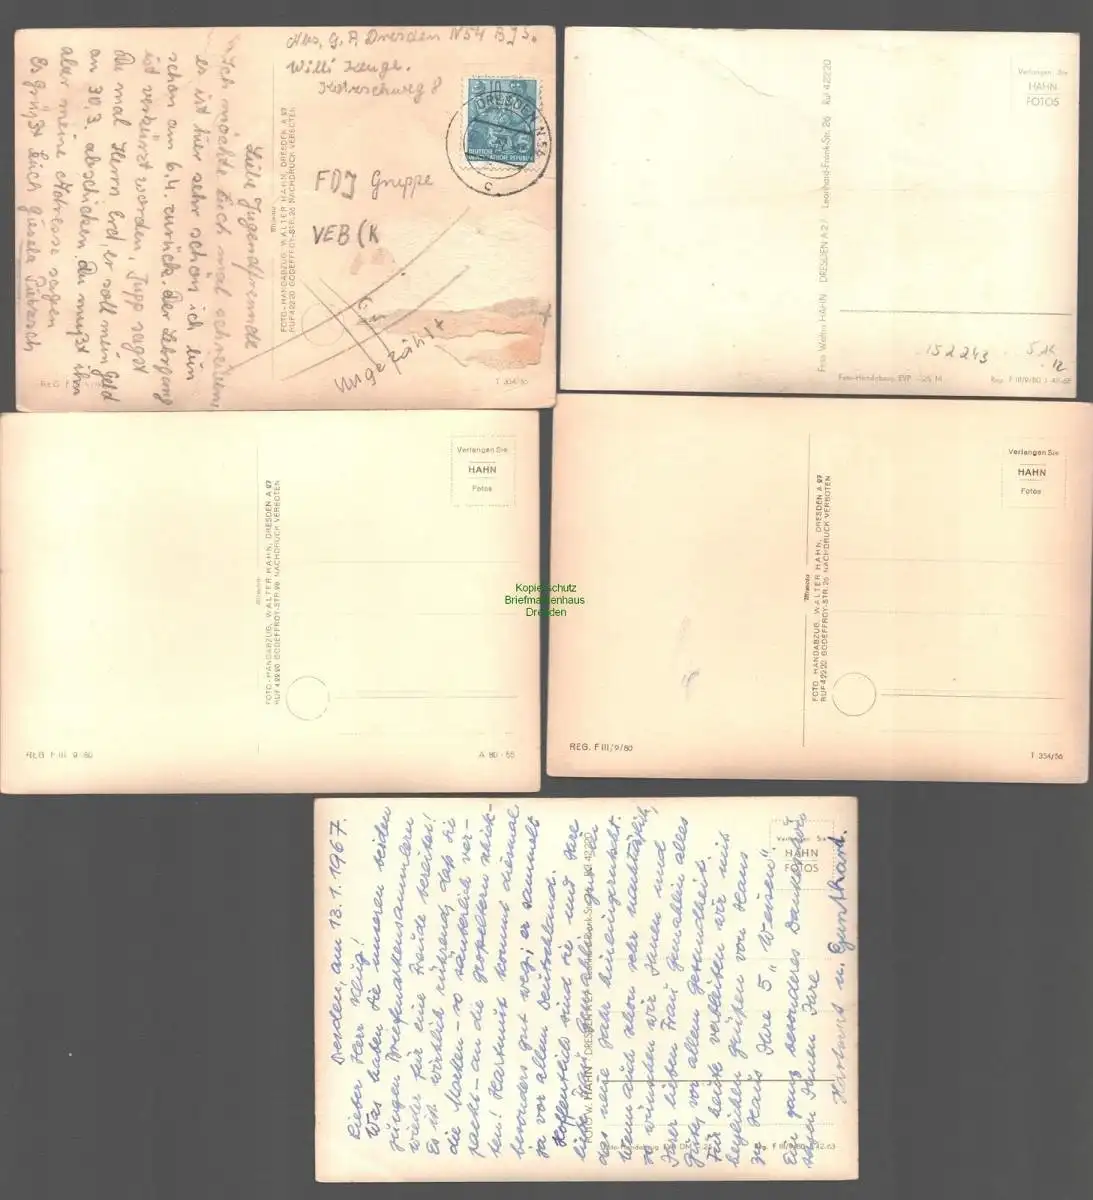 Abs. G. P. Dresden N54 BJS.
Willi
8
Liebe Jugendfreunde
Ich möchte Euch mal schreiben,
es ist hier sehr schön ich bin
schon am 6.4. zurück. Der Lehrgang
ist verkürzt worden, Jupp sagst
Du mal Herrn Erd, er soll mein Geld
am 30.3. abschicken. Du mußt ihm
aber meine Adresse sagen
Es grüßt Euch Gisela
FDJ Gruppe
VEB (K
ungezählt
10
DRESDEN N 54
c
DEUTSCHE
DEMOKRATISCHE REPUBLIK
FOTO-HANDABZUG, WALTER HAHN, DRESDEN A 27
RUF 42220 GODEFFROY-STR. 26 NACHDRUCK VERBOTEN
REG. F
T 334/56
Verlangen Sie
HAHN
FOTOS
Foto Walter HAHN DRESDEN A 27 Leonhard-Frank-Str. 26 Ruf 42220
152243
Foto-Handabzug EVP -,25 M
Reg. F III/9/80 J 42-68
Verlangen Sie
HAHN
Fotos
FOTO-HANDABZUG, WALTER HAHN, DRESDEN A 27
RUF 42220 GODEFFROY-STR. 26 NACHDRUCK VERBOTEN
REG. F III 9/80
A 80 - 55
Verlangen Sie
HAHN
Fotos
FOTO-HANDABZUG, WALTER HAHN, DRESDEN A 27
RUF 42220 GODEFFROY-STR. 26 NACHDRUCK VERBOTEN
REG. F III/9/80
T 334/56
Kopierschutz
Briefmarkenhaus
Dresden
Dresden, am 13.1.1967.
Lieber Herr Klug!
Was haben Sie unseren beiden
jungen Briefmarkensammlern
wieder für eine Freude bereitet!
Es ist wirklich rührend, daß Sie
die Marken - so säuberlich ver-
packt - an die gropeltern schick-
ten! Hartmut kommt diesmal
besonders gut weg; er sammelt
ja vor allem Deutschland.
Hoffentlich sind Sie und Ihre
liebe Frau Gemahlin gut in
das neue Jahr hineingerutscht.
Wenn auch schon sehr nachträglich,
so wünschen wir Ihnen und
Ihrer lieben Frau Gemahlin alles
Gute, vor allem Gesundheit.
Für heute verbleiben wir mit
herzlichen Grüßen von Haus
zu Haus Ihre 5 „Weisen"
Ein ganz besonderes Dankeschön
sagen Ihnen Ihre
Hartmut u. Gunthart.
Verlangen Sie
HAHN
FOTOS
FOTO W. HAHN DRESDEN A 27 Leonhard-Frank-Str. 26 Ruf 42220
Foto-Handabzug EVP DM -,25
Reg. F III/9/80 J 42-63